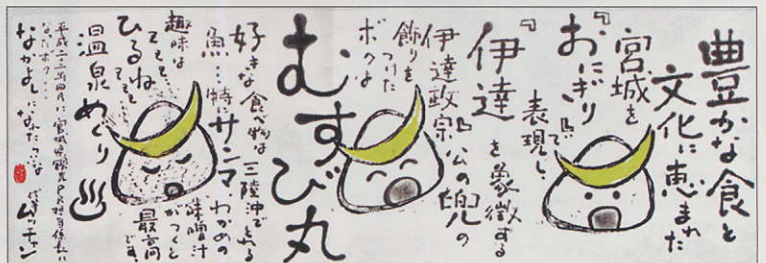 豊かな食と
文化に恵まれた
宮城を
『おにぎり』で
表現し、
『伊達』を象徴する
伊達政宗公の兜の
飾りを
つけた
ボクは
むすび丸
好きな食べ物は三陸沖でとれる
魚…特にサンマ わかめの
味噌汁
がつくと
最高です
趣味は
ひるね
温泉めぐり
平成二十二年四月に宮城県観光PR担当係長に
なったボク…
なかよしに